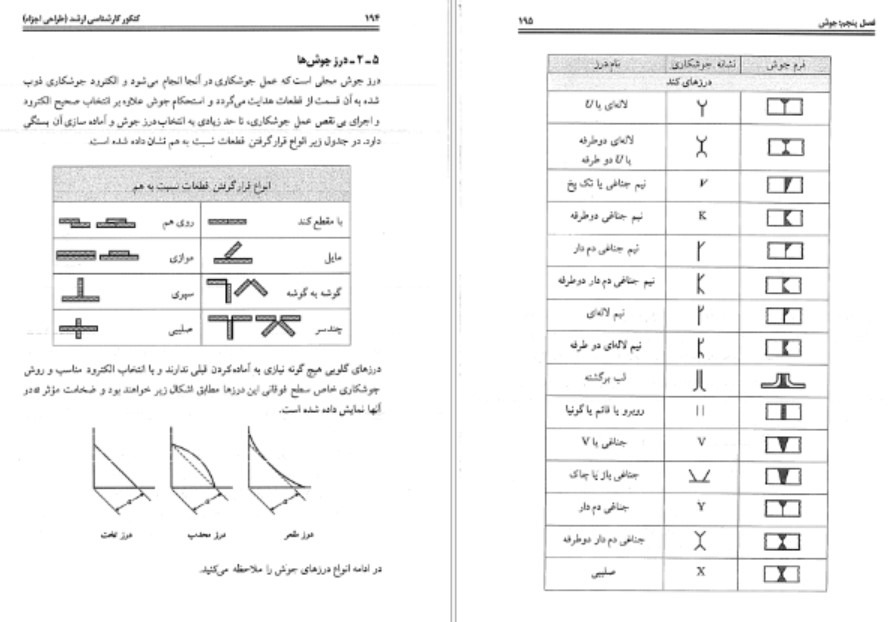 ۱۹۴
کنکور کارشناسی ارشد (طراحی اجزاء)
۵ـ۲ـ درز جوش‌ها
درز جوش محلی است که عمل جوشکاری در آنجا انجام می‌شود و الکترود جوشکاری ذوب
شده به آن قسمت از قطعات هدایت می‌گردد و استحکام جوش علاوه بر انتخاب صحیح الکترود
و اجرای بی نقص عمل جوشکاری، تا حد زیادی به انتخاب درز جوش و آماده سازی آن بستگی
دارد. در جدول زیر انواع قرار گرفتن قطعات نسبت به هم نشان داده شده است.
انواع قرار گرفتن قطعات نسبت به هم
با مقطع کند
روی هم
مایل
موازی
گوشه به گوشه
سپری
چندسر
صلیبی
درزهای گلویی هیچ گونه نیازی به آماده‌کردن قبلی ندارند و با انتخاب الکترود مناسب و روش
جوشکاری خاص سطح فوقانی این درزها مطابق اشکال زیر خواهند بود و ضخامت مؤثر a در
آنها نمایش داده شده است.
a a a
درز مقعر
درز محدب
درز تخت
در ادامه انواع درزهای جوش را ملاحظه می‌کنید.
فصل پنجم: جوش
۱۹۵
فرم جوش نشانه جوشکاری نام درز
درزهای کند
لاله‌ای یا U
لاله‌ای دوطرفه
یا U دو طرفه
نیم جناغی یا تک پخ
V
نیم جناغی دوطرفه
K
نیم جناغی دم دار
نیم جناغی دم دار دوطرفه
نیم لاله‌ای
نیم لاله‌ای دو طرفه
لب برگشته
روبرو یا قائم یا گونیا
||
جناغی یا V
V
جناغی باز یا چاک
جناغی دم دار
Y
جناغی دم دار دوطرفه
صلیبی
X